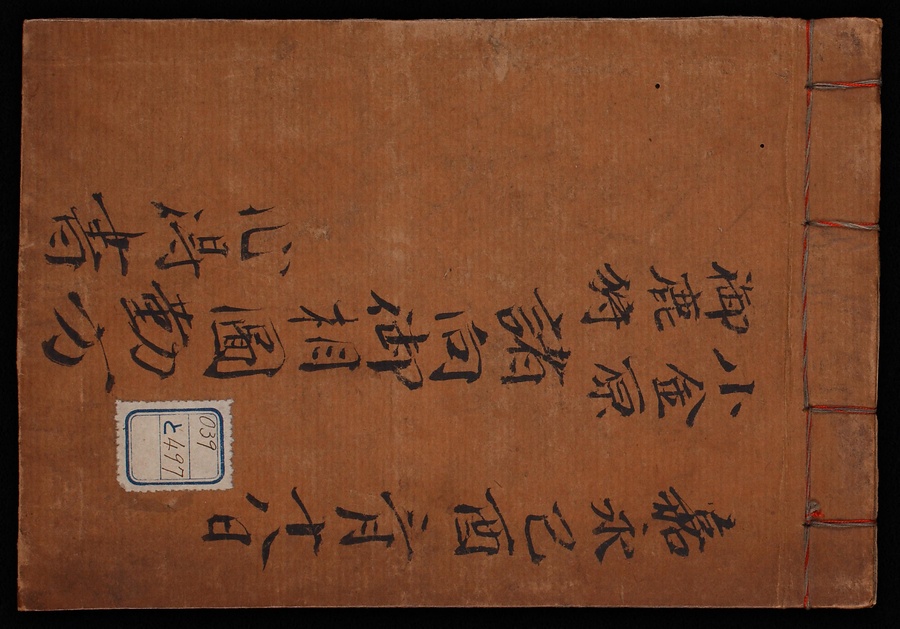 嘉永己酉二月十八日
小金原
御鹿狩
諸向御相圖
勤方
心得書
039
と497